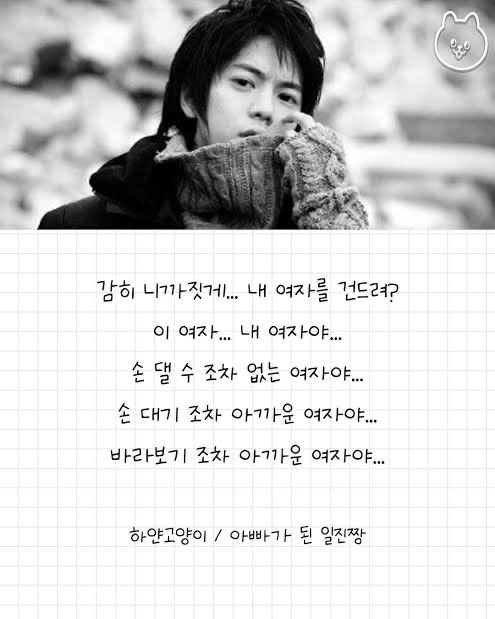 감히 니까짓게... 내 여자를 건드려?
이 여자... 내 여자야...
손 댈 수 조차 없는 여자야...
손 대기 조차 아까운 여자야...
바라보기 조차 아까운 여자야...
하얀고양이 / 아빠가 된 일진짱